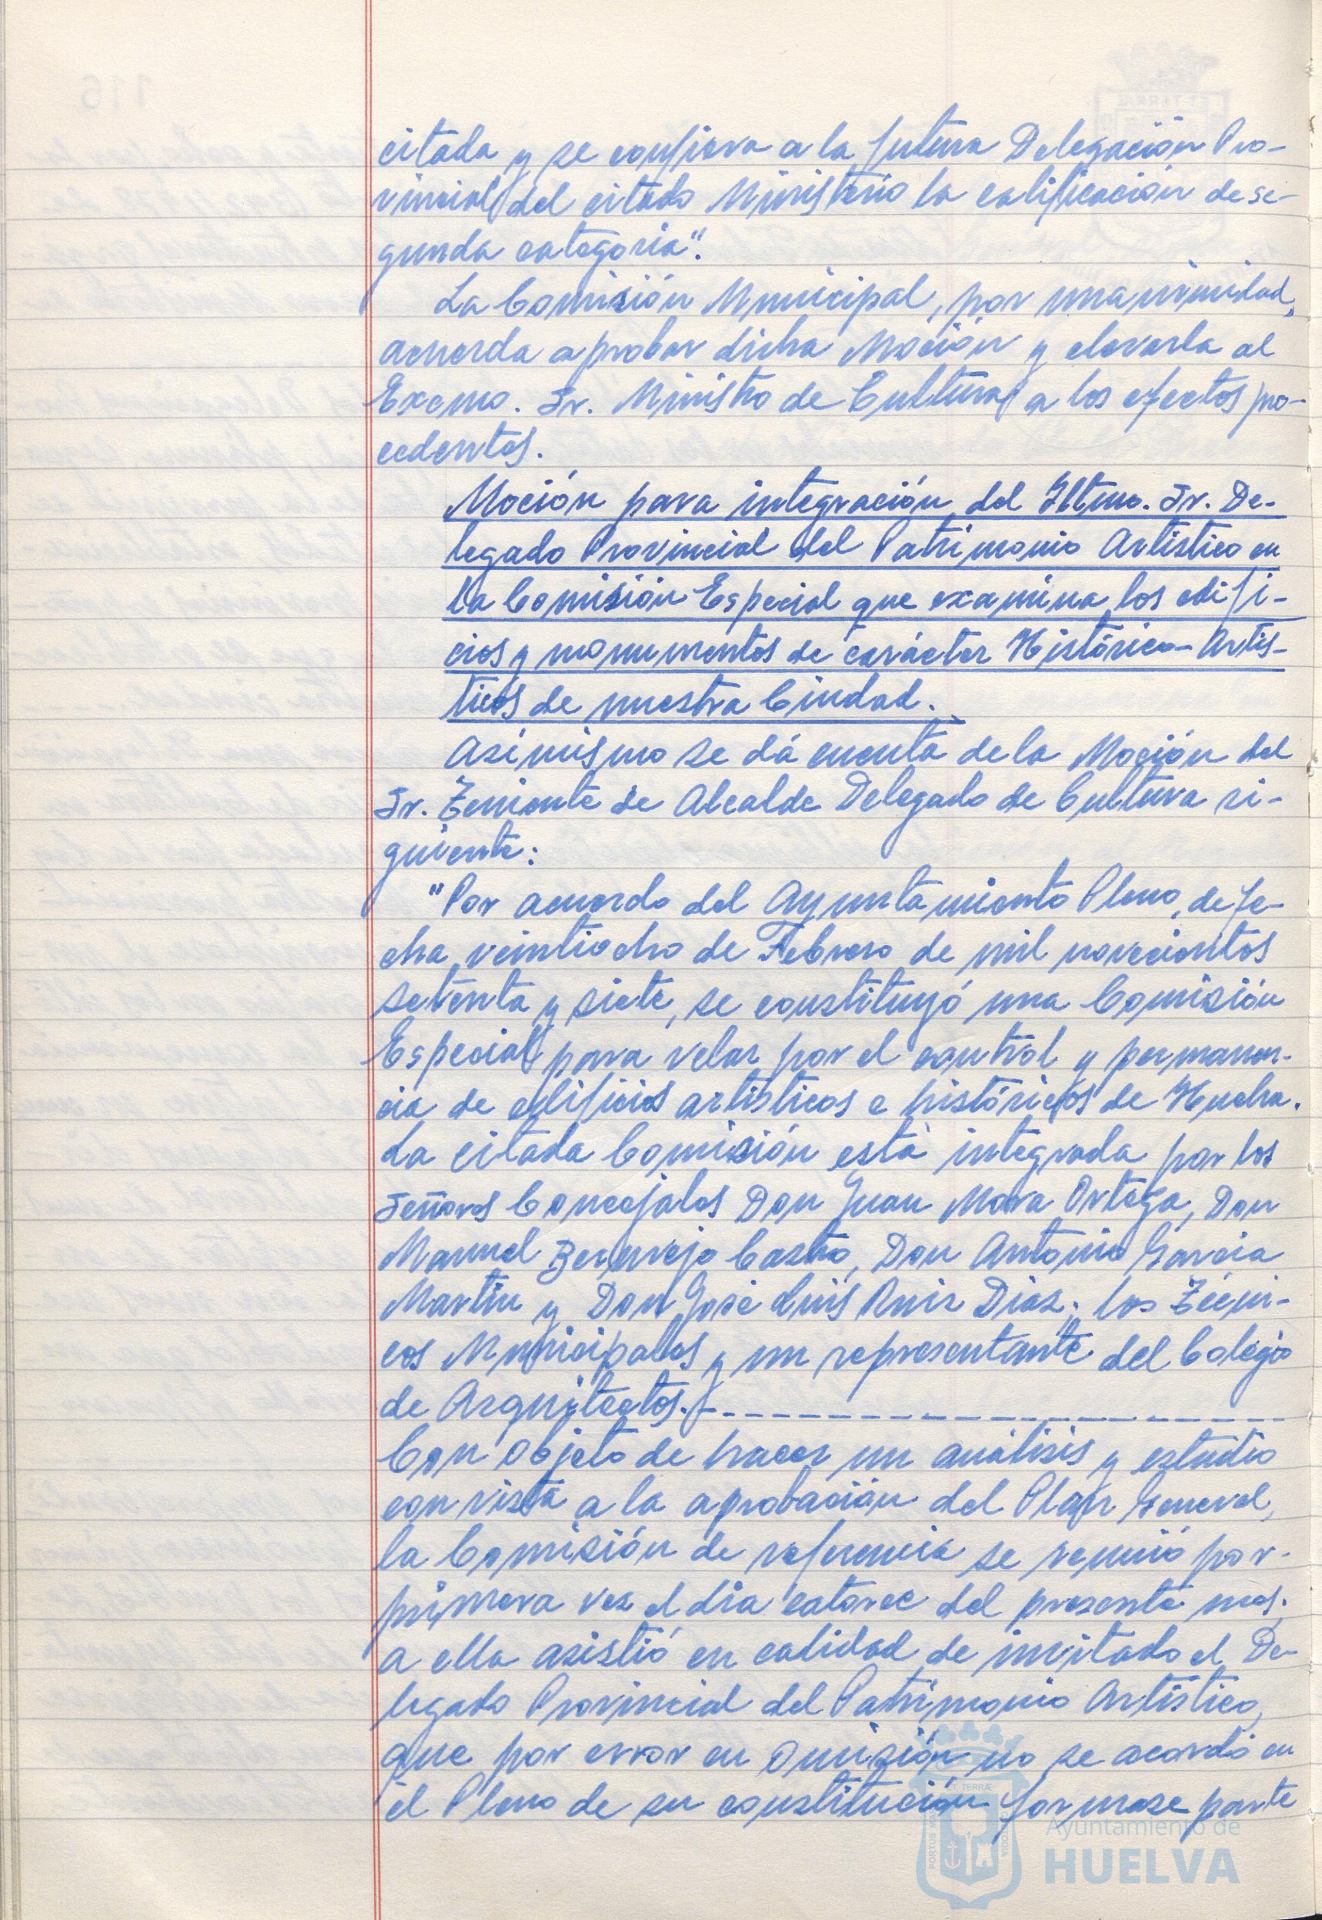 citada y se confiera a la futura Delegación Pro-
vincial del citado Ministerio la calificación de se-
gunda categoria".
La Comisión Municipal, por unanimidad,
acuerda aprobar dicha Moción y elevarla al
Excmo. Sr. Ministro de Cultura a los efectos pro-
cedentes.
Moción para integración del Iltmo. Sr. De-
legado Provincial del Patrimonio Artístico en
la Comisión Especial que examina los edifi-
cios y monumentos de carácter Histórico-Artís-
ticos de nuestra Ciudad.
Asimismo se dá cuenta de la Moción del
Sr. Teniente de Alcalde Delegado de Cultura si-
guiente:
"Por acuerdo del Ayuntamiento Pleno, de fe-
cha veintiocho de Febrero de mil novecientos
setenta y siete, se constituyó una Comisión
Especial para velar por el control y permanen-
cia de edificios artísticos e históricos de Huelva.
La citada Comisión está integrada por los
Señores Concejales Don Juan Mora Ortega, Don
Manuel Bermejo Castro, Don Antonio García
Martin y Don José Luis Ruiz Diaz, los Técni-
cos Municipales y un representante del Colegio
de Arquitectos.
Con objeto de hacer un análisis y estudio
con vista a la aprobación del Plan General,
la Comisión de referencia se reunió por
primera vez el dia catorce del presente mes,
a ella asistió en calidad de invitado el De-
legado Provincial del Patrimonio Artístico,
que por error en omisión no se acordó en
el Pleno de su constitución formase parte
Ayuntamiento de
HUELVA